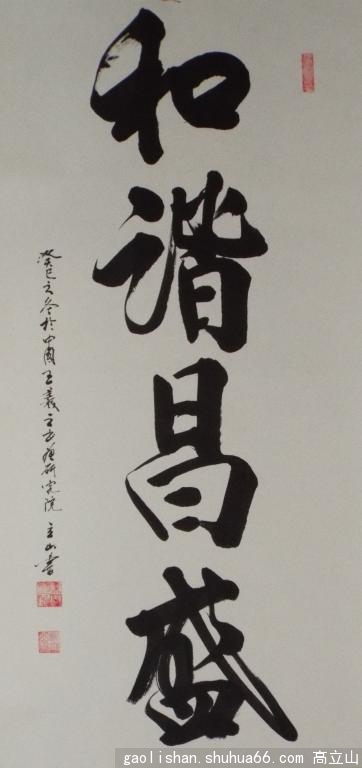 和谐昌盛
癸巳之冬於中国王羲之书画研究院 立山书
gaolishan.shuhua66.com 高立山